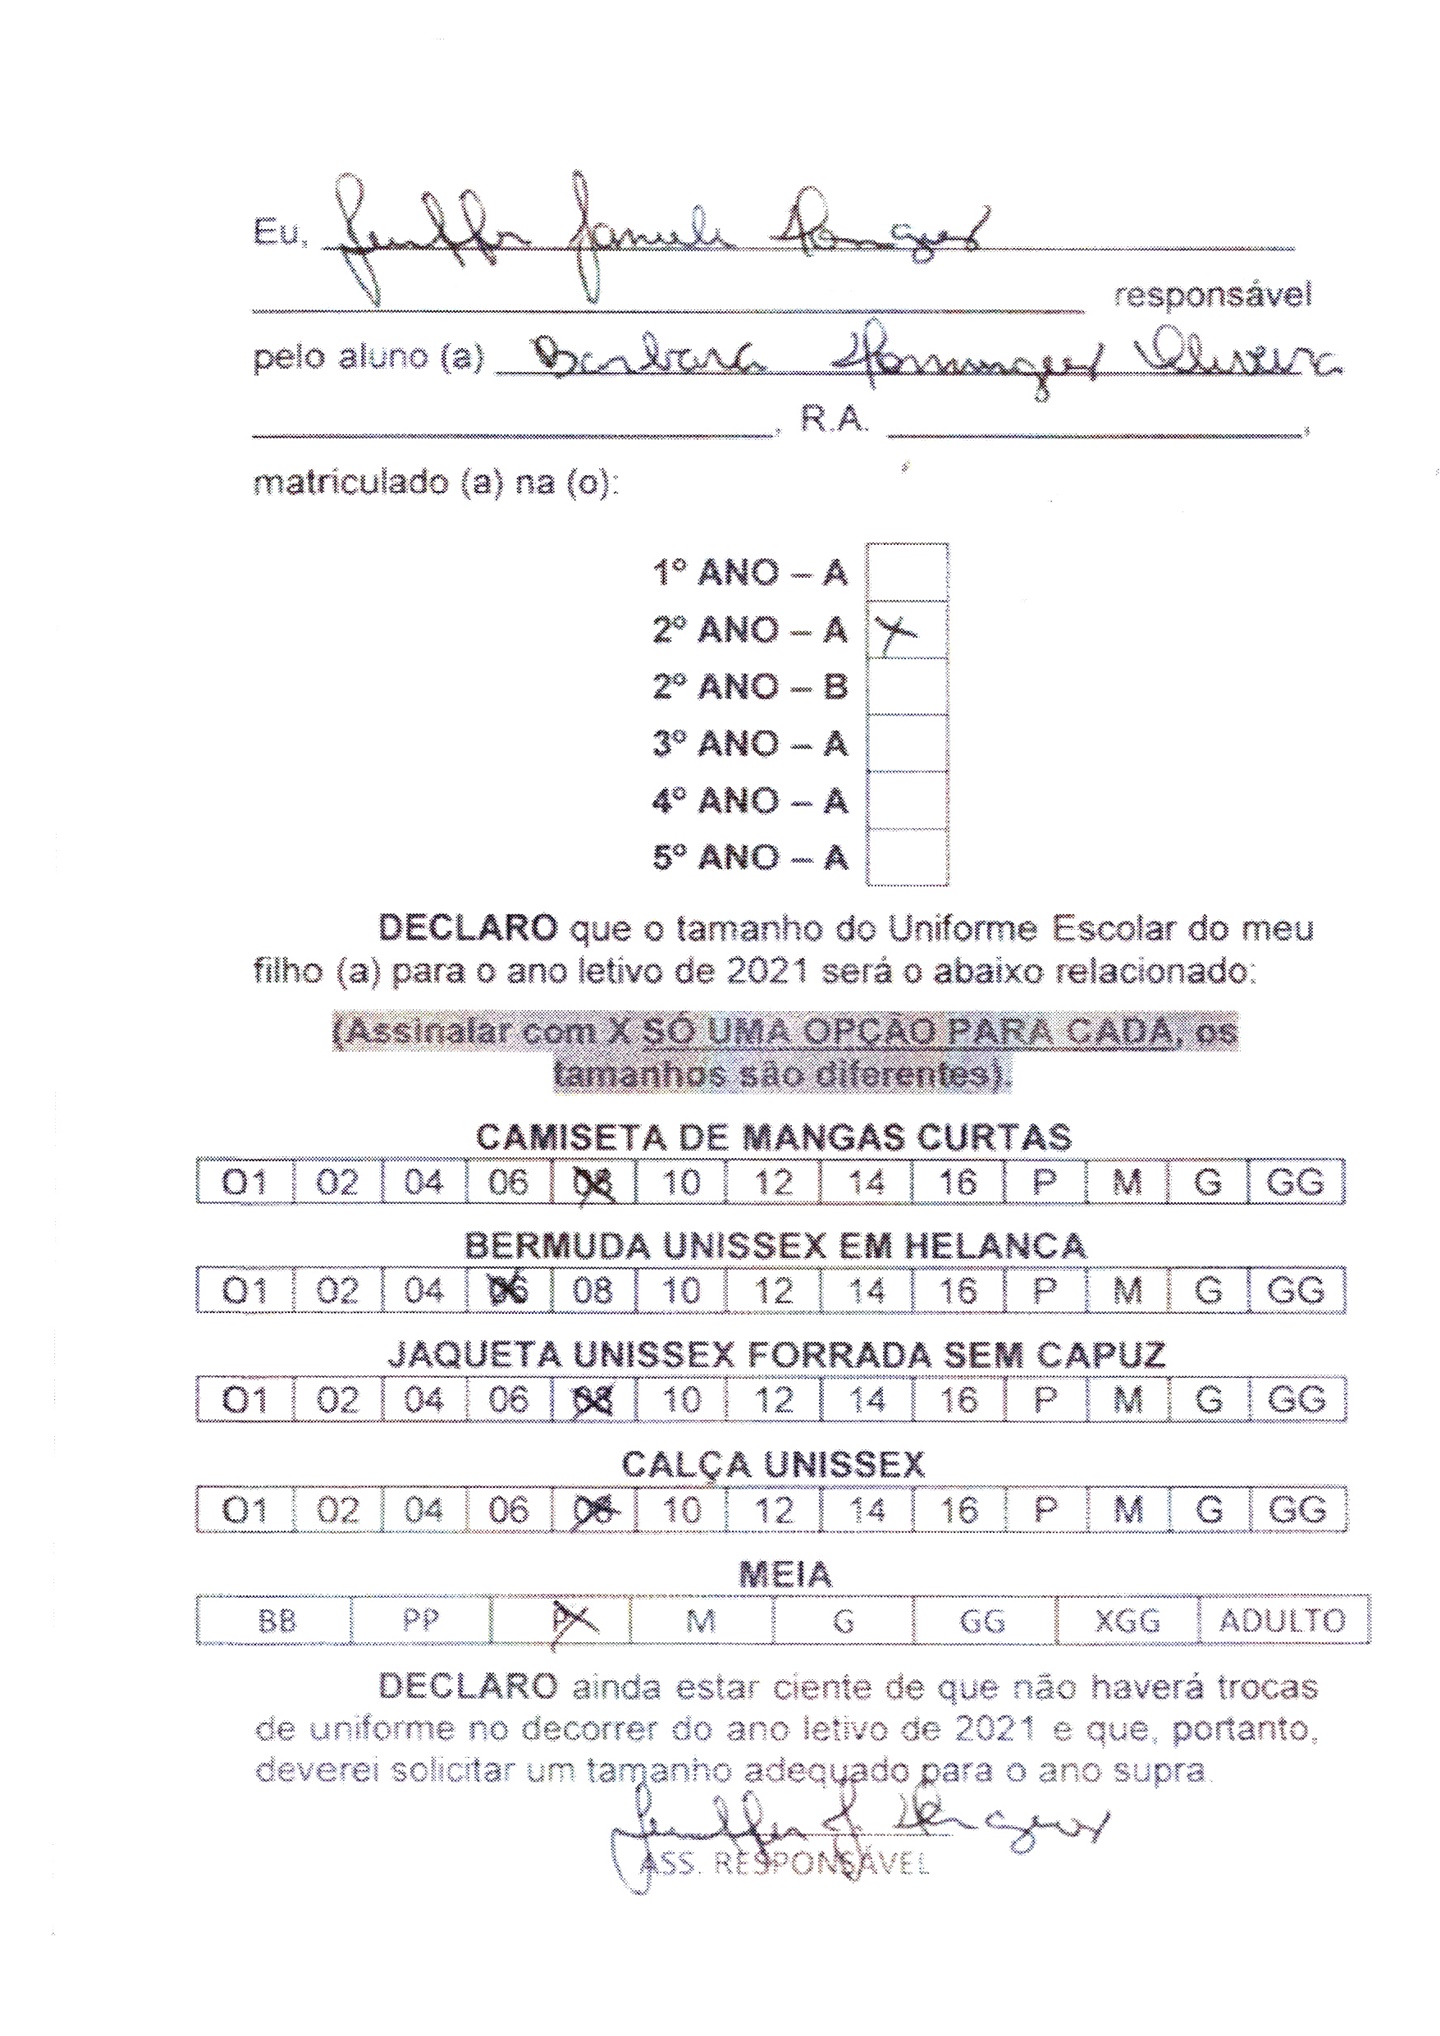 Eu, Jeniffer Daniele Domingues
responsável
pelo aluno (a) Barbara Domingues Oliveira
, R.A. ,
matriculado (a) na (o):
1º ANO – A
2º ANO – A X
2º ANO – B
3º ANO – A
4º ANO – A
5º ANO – A
DECLARO que o tamanho do Uniforme Escolar do meu
filho (a) para o ano letivo de 2021 será o abaixo relacionado:
(Assinalar com X SÓ UMA OPÇÃO PARA CADA, os
tamanhos são diferentes).
CAMISETA DE MANGAS CURTAS
O1 02 04 06 08 10 12 14 16 P M G GG
BERMUDA UNISSEX EM HELANCA
O1 02 04 06 08 10 12 14 16 P M G GG
JAQUETA UNISSEX FORRADA SEM CAPUZ
O1 02 04 06 08 10 12 14 16 P M G GG
CALÇA UNISSEX
O1 02 04 06 08 10 12 14 16 P M G GG
MEIA
BB PP P M G GG XGG ADULTO
DECLARO ainda estar ciente de que não haverá trocas
de uniforme no decorrer do ano letivo de 2021 e que, portanto,
deverei solicitar um tamanho adequado para o ano supra.
ASS. RESPONSÁVEL